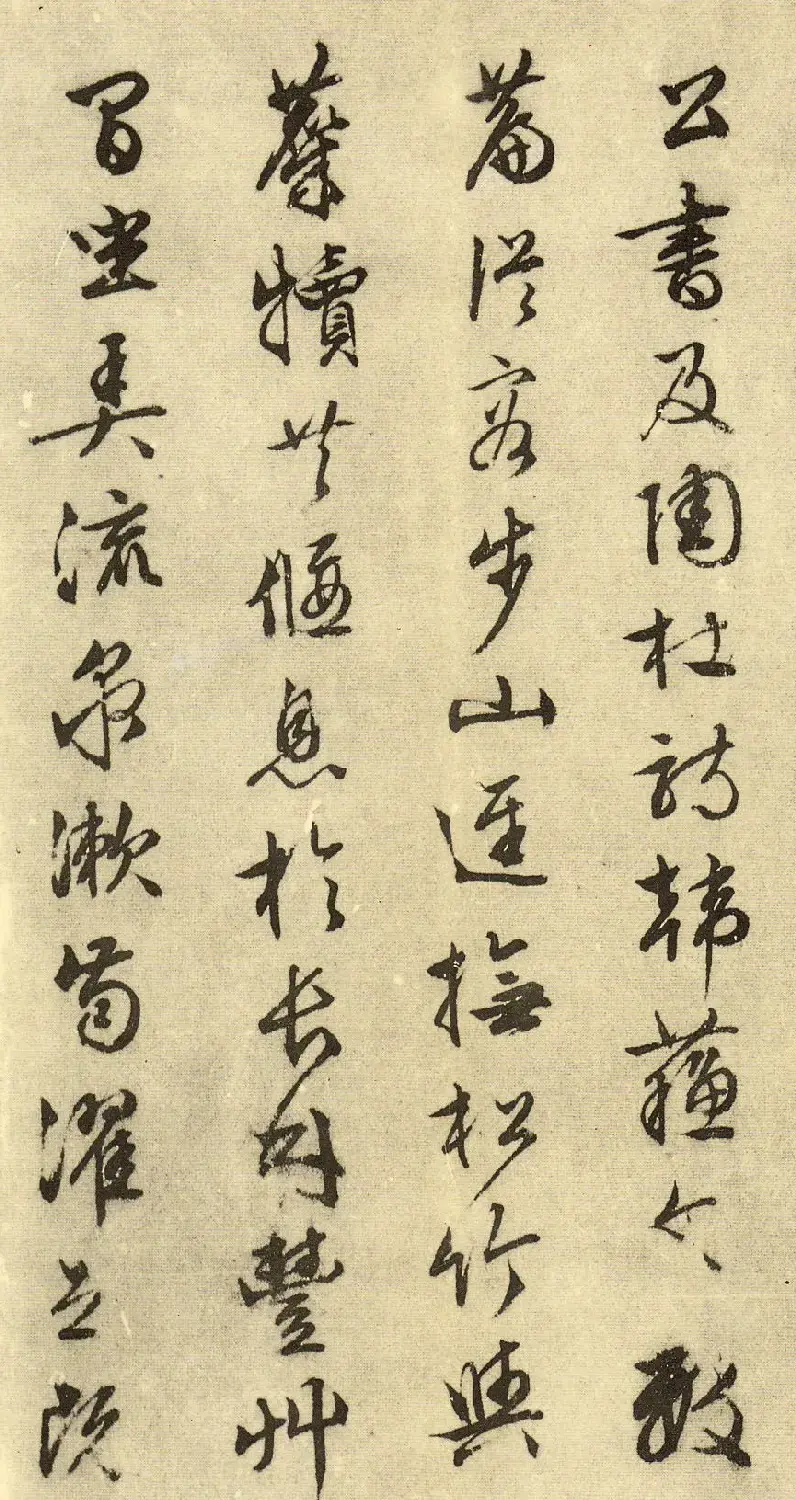 公書及陶杜詩韓蘇文數
篇從容步山逕撫松竹與
麛犢共偃息於長林豐艸
間坐弄流泉漱齒濯足既